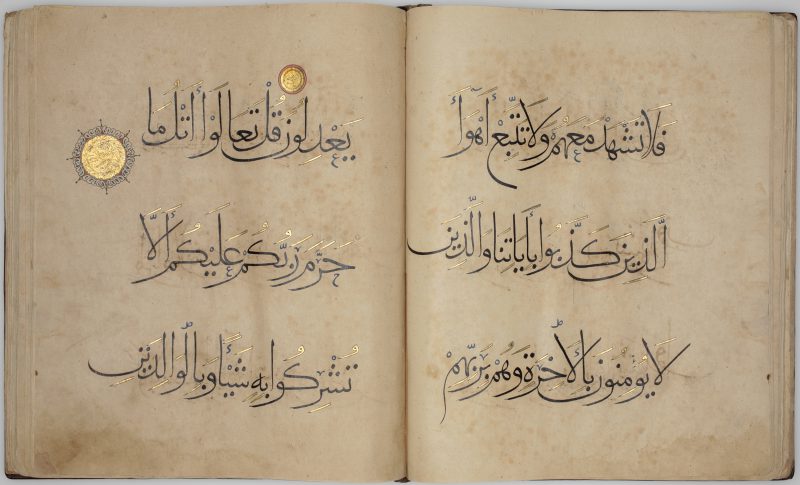 فَلَا تَشْهَدْ مَعَهُمْ وَلَا تَتَّبِعْ أَهْوَآءَ
الَّذِينَ كَذَّبُوا بِأَيَاتِنَا وَالَّذِينَ
لَا يُؤْمِنُونَ بِالْأَخِرَةِ وَهُمْ بِرَبِّهِمْ
يَعْدِلُونَ قُلْ تَعَالَوْا أَتْلُ مَا
حَرَّمَ رَبُّكُمْ عَلَيْكُمْ أَلَّا
تُشْرِكُوا بِهِ شَيْئًا وَبِالْوَالِدَيْنِ